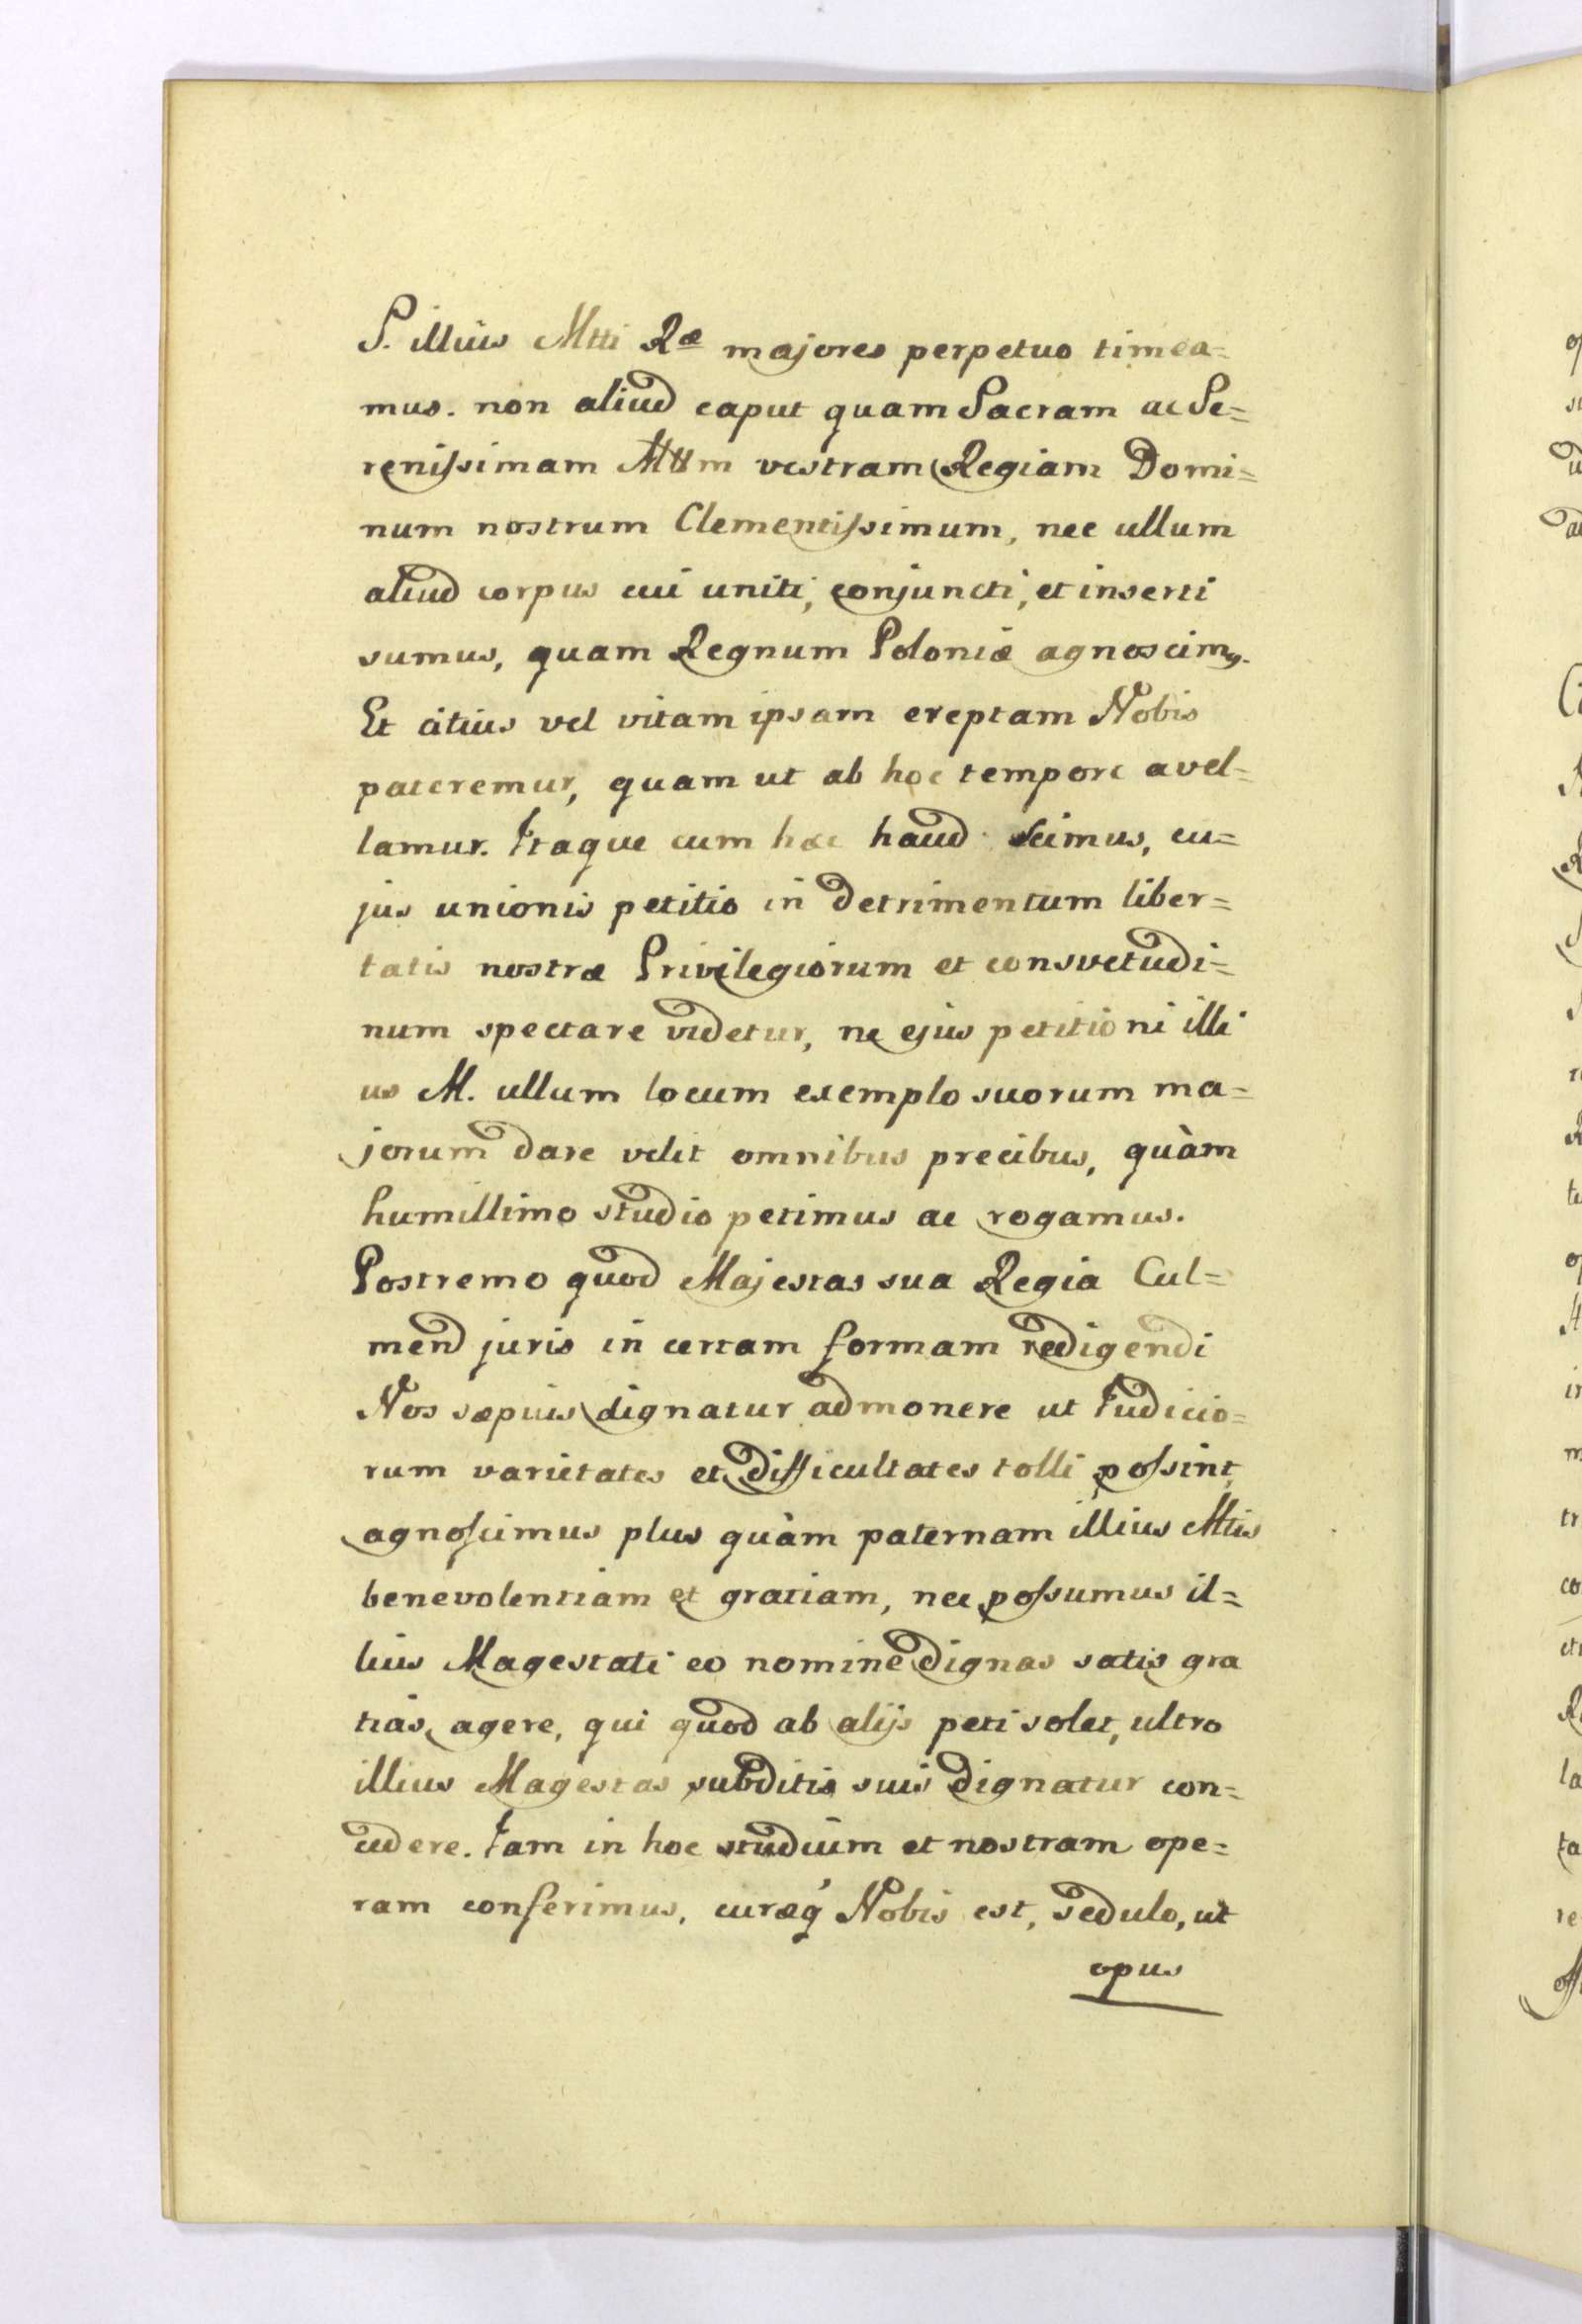 S. illius Mtti Ræ majores perpetuo timea=
mus. non aliud caput quam Sacram ac Se=
renissimam Mttm vestram Regiam Domi=
num nostrum Clementissimum, nec ullum
aliud corpus cui uniti, conjuncti, et inserti
sumus, quam Regnum Poloniæ agnoscimꝯ.
Et citius vel vitam ipsam ereptam Nobis
pateremur, quam ut ab hoc tempore avel=
lamur. Itaque cum hæc haud scimus, cu=
jus unionis petitio in detrimentum liber=
tatis nostræ Privilegiorum et consvetudi=
num spectare videtur, ne ejus petitioni illi
us M. ullum locum exemplo suorum ma=
jorum dare velit omnibus precibus, quàm
humillimo studio petimus ac rogamus.
Postremo quod Majestas sua Regia Cul=
mend juris in certam formam redigendi
Nos sæpius dignatur admonere ut Iudicio=
rum varietates et difficultates tolli possint,
agnoscimus plus quàm paternam illius Mtis
benevolentiam et gratiam, nec possumus il=
lius Magestati eo nomine dignas satis gra
tias agere, qui quod ab alijs peti solet, ultro
illius Magestas subditis suis dignatur con=
cedere. Iam in hoc studium et nostram ope=
ram conferimus, curæq́ Nobis est, sedulo, ut
opus